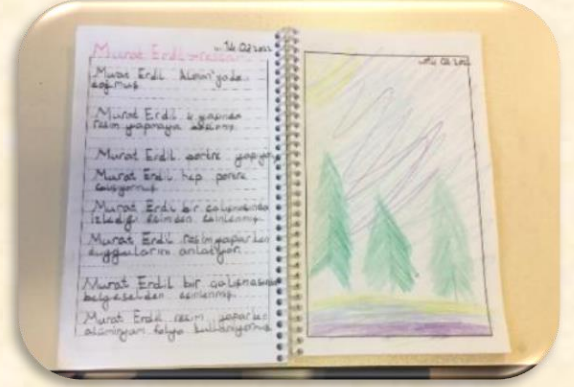 Murat Erdil
14.02.2022
Murat Erdil Almanyada
doğmuş.
Murat Erdil 4 yaşında
resim yapmaya başlamış.
Murat Erdil portre yapıyor
Murat Erdil hep portre
çalışıyormuş.
Murat Erdil bir çalışmasında
izlediği filmden esinlenmiş.
Murat Erdil resim yaparken
duygularını anlatıyor.
Murat Erdil bir çalışmasında
belgeselden esinlenmiş.
Murat Erdil resim yaparken
alüminyum folyo kullanıyormuş.